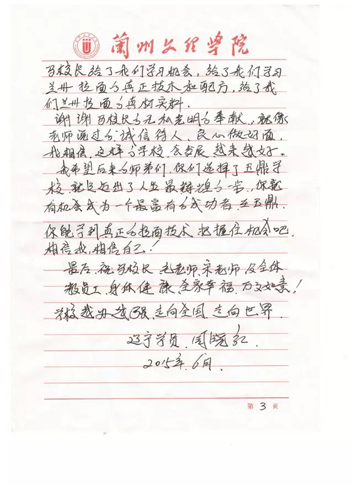 兰州文理学院
马校长给了我们学习机会，给了我们学习
兰州拉面的真正技术和配方，给了我
们兰州拉面的真材实料。
谢谢马校长的无私老师的奉献，就像
老师说过的，诚信待人，良心做好面，
我相信，这样的学校会发展越来越好。
我希望后来的师弟们，你们选择了五鼎学
校，就是迈出了人生最辉煌的一步，你就
有机会成为一个最富有的成功者，在五鼎，
你能学到真正的拉面技术，把握住机会吧，
相信我，相信自己！
最后，祝马校长、毛老师、宋老师及全体
教员工，身体健康，合家幸福，万事如意！
学校越办越强，走向全国，走向世界。
辽宁学员
2015年6月
第 3 页